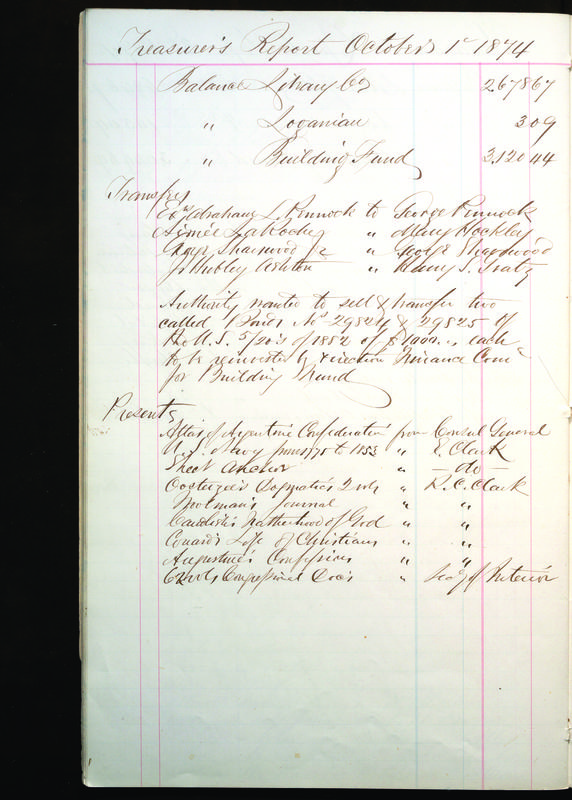 Treasurer's Report October 1st 1874
Balance Library Co 2678 67
" Loganian 3 09
" Building Fund 3.120 44
Transfers
Exr Abraham L. Pennock to George Pennock
Aimée LaRoche " Mary Hockley
George Sharswood Jr " George Sharswood
J. Hubley Ashton " Henry S. Gratz
Authority wanted to sell & transfer two
called Bonds Nos 29824 & 29825 of
the U.S. 5/20s of 1852 of $1000. " each
to be reinvested by direction Finance Come
for Building Fund
Presents
Atlas of Argentine Confederation from Consul General
U.S. Navy from 1775 to 1853 " E. Clark
Sheet Anchor " - do -
Oosterzee's Dogmatics 2 vols " R. C. Clark
Woolman's Journal " "
Candlish's Fatherhood of God " "
Conard's Life of Christians " "
Augustine's Confessions " "
vols Congressional Doc's " Secy of Interior